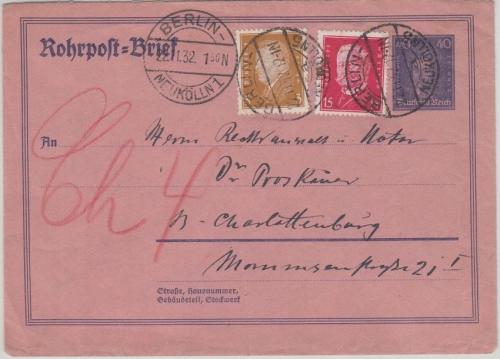 Rohrpost=Brief
BERLIN-
22.1.32. 1-2 N
NEUKÖLLN 1
15
40
Deutsches Reich
Ch 4
An
Herrn Rechtsanwalt u Notar
Dr Proskauer
Charlottenburg
Mommsenstraße 21 I
Straße, Hausnummer,
Gebäudeteil, Stockwerk